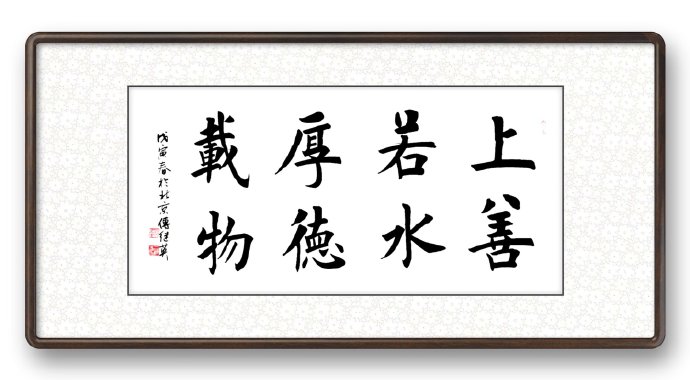 上善
若水
厚德
載物
戊寅春於北京傅继英